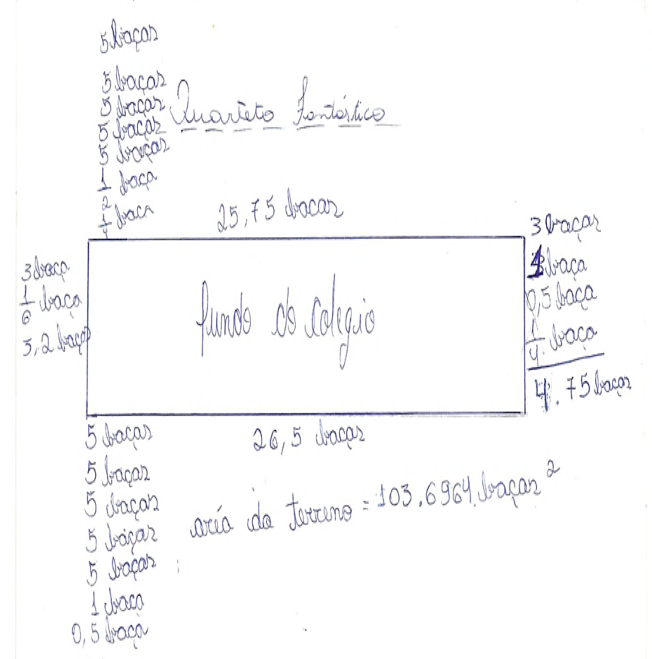 5 braças
5 braças
5 braças
5 braças
5 braças
1/2 braça
1/4 braça
Quarteto Fantástico
25,75 braças
3 braça
1/6 braça
3,2 braças
fundo do colegio
3 braças
1 braça
0,5 braça
1/4 braça
4.75 braças
5 braças
5 braças
5 braças
5 braças
5 braças
1 braça
0,5 braça
26,5 braças
aréa do terreno = 103.6964 braças²